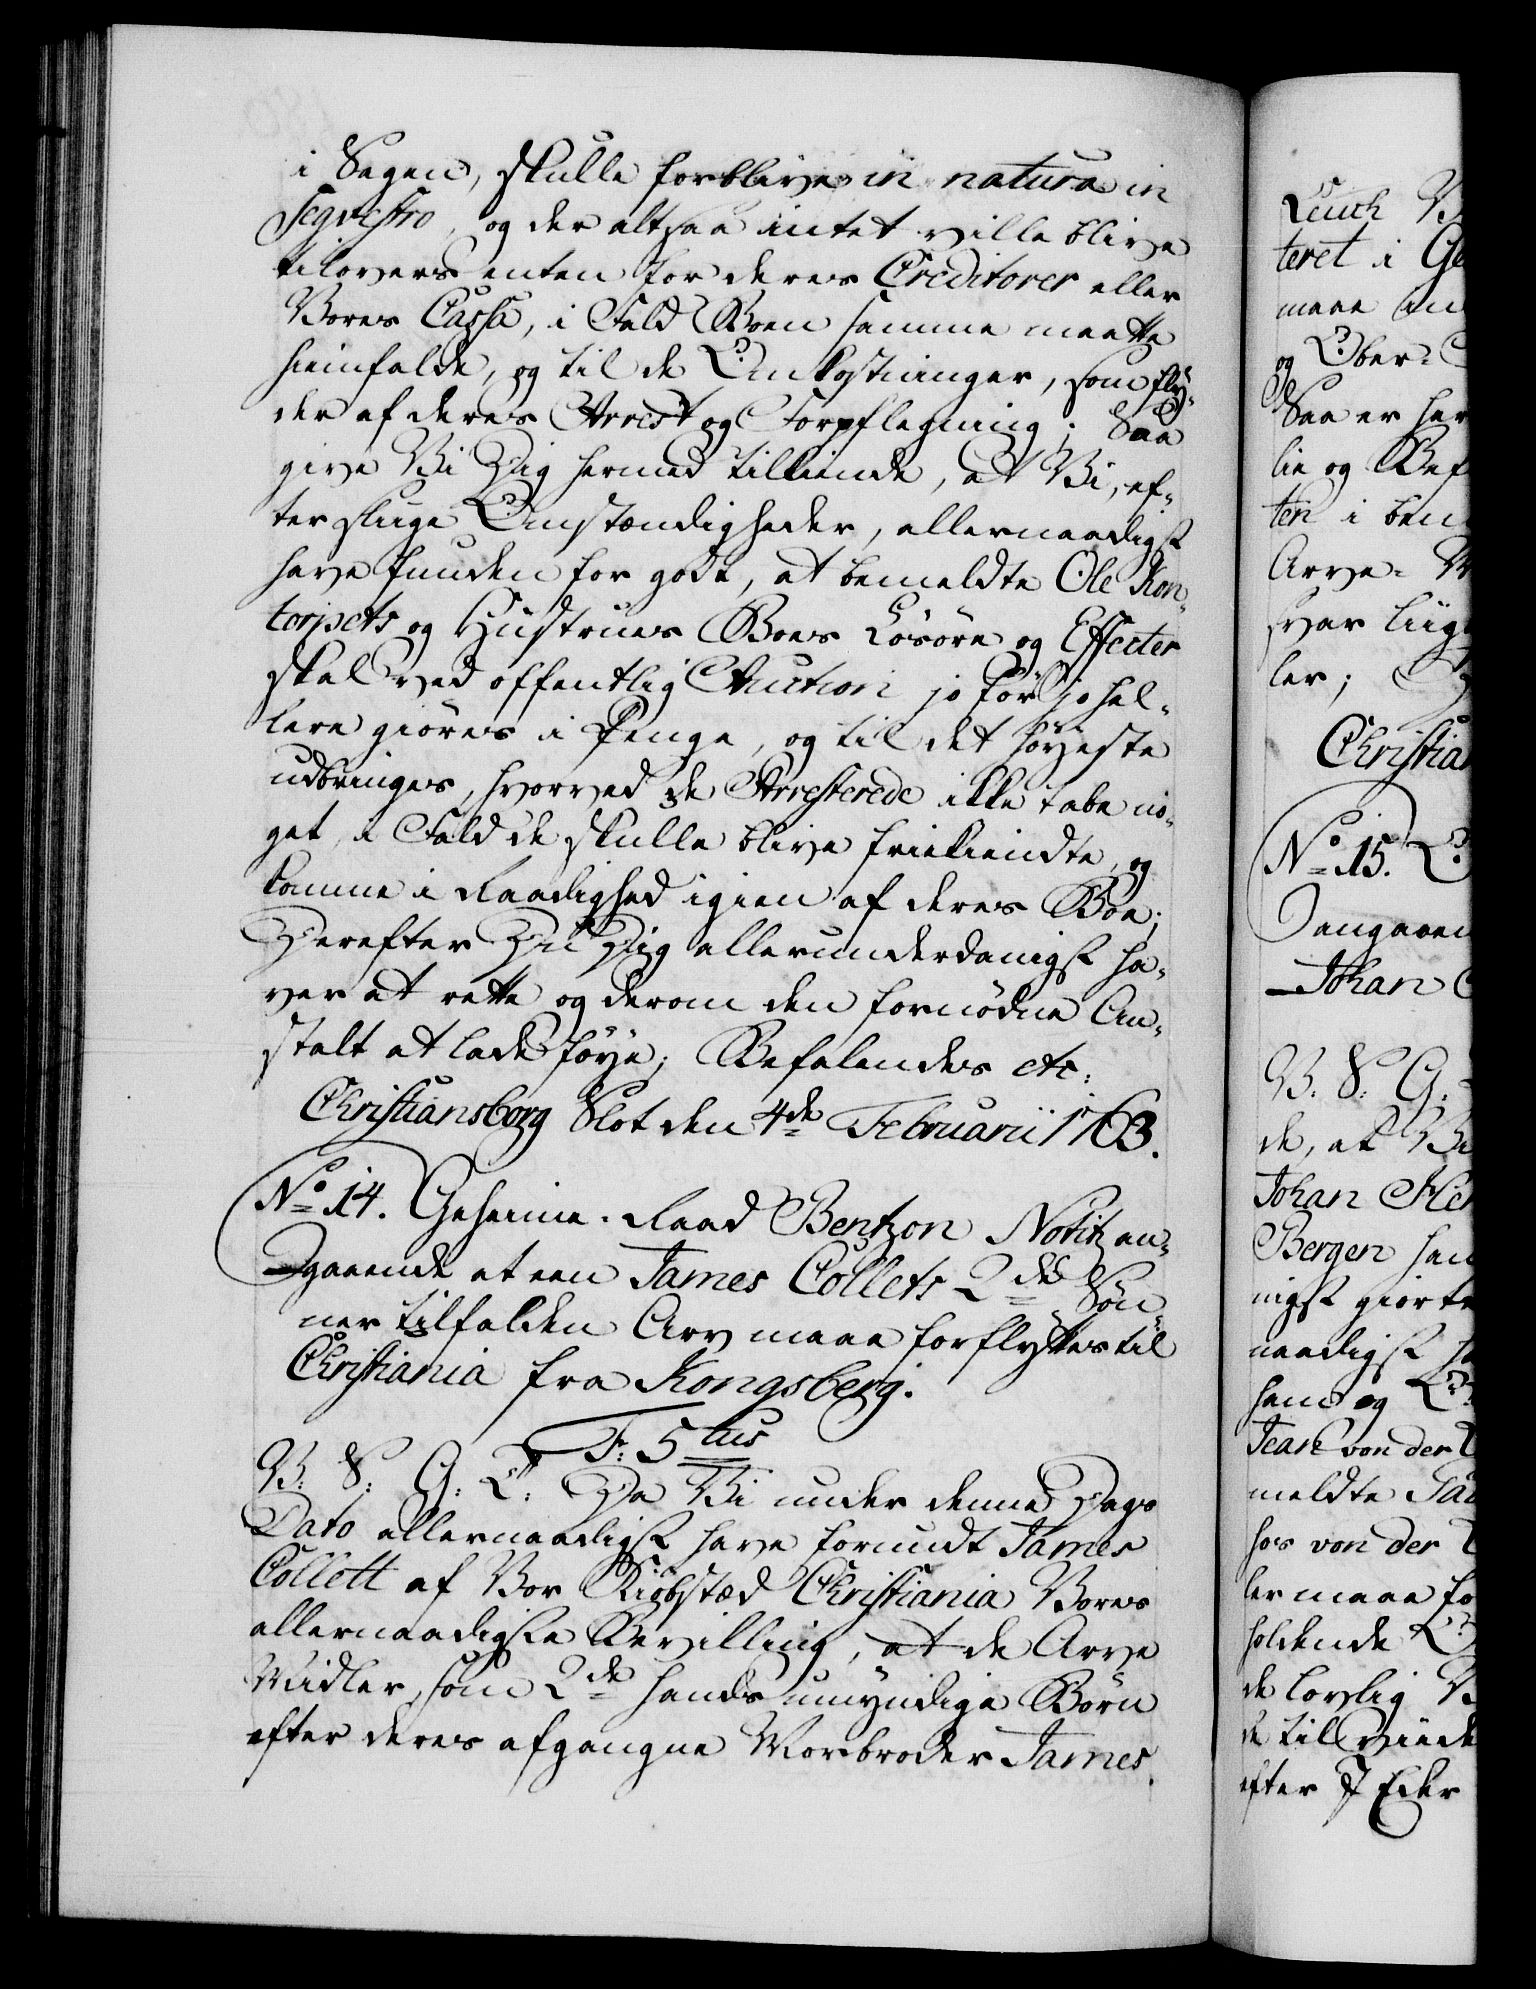 i Sagen, skulle forblive in natura in
Seqvestro, og der altsaa intet ville blive
tilovers enten for deres Creditorer eller
Vores Cassa, i Fald Boen samme maatte
hiemfalde, og til de Omkostninger, som fly-
der af deres Arrest og Forpflegning; Saa
give Vi Dig hermed tilkiende, at Vi, ef-
ter slige Omstændigheder, allernaadigst
have funden for godt, at bemeldte Ole Kon-
torjsets og Hustrues Boes Løsøre og Effecter
skal ved offentlig Auction jo før jo hel-
lere giøres i Penge, og til det høyeste
udbringes, hvorved de Arresterede ikke tabe no-
get, i Fald de skulle blive friekiendte, og
komme i Raadighed igien af deres Boe;
Derefter Du Dig allerunderdanigst ha-
ver at rette og derom den fornødne An-
stalt at lade føye; Befalendes etc:
Christiansborg Slot den 4de Februarii 1763.
No 14. Geheime-Raad Bentzon Notitz an-
gaaende at een James Collets 2de Søn-
ner tilfalden Arv maae forflyttes til
Christiania fra Kongsberg.
F: 5tus
V: S: G: T: Da Vi under denne Dags
Dato allernaadigst have forundt James
Collett af Vor Kiøbstæd Christiania Vores
allernaadigste Bevilling, at de Arve
Midler, som 2de hands umyndige Børn
efter deres afgangne Morbroder James
Leuch V
teret i Ge
maae an
og Ober-C
Saa er her
lie og Bef
ten i bem
Arve-M
svar liig
ler;
Christia
No 15.
Dangaaen
Johan C
V: S: G:
de, at Vi
Johan Her
Bergen ha
nigst giort
naadigst ha
ham og
Jean von der
meldte Sa
hos von der
ler maae fo
holdende
de lovlig V
de til viid
efter J Eder